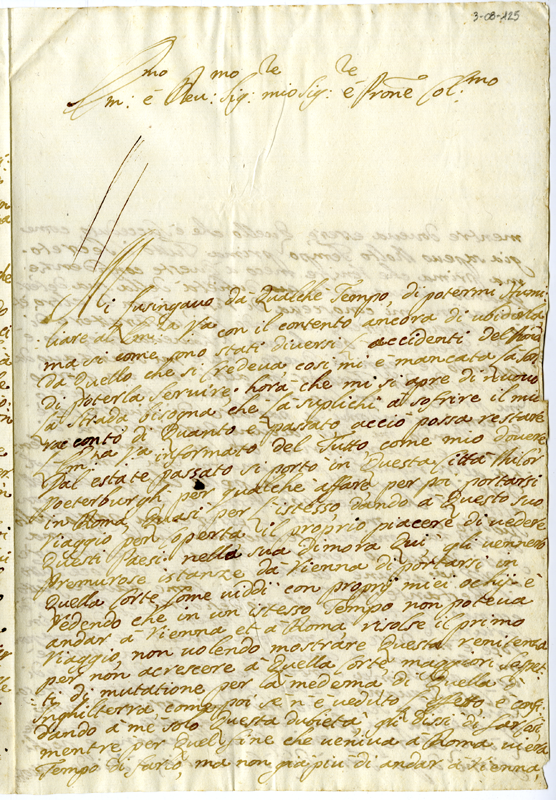 3-08-125
Em:mo é Reu:mo Sig:re mio Sig:re é Prone Col:mo
Mi lusingauo da Qualche Tempo, di potermi Humi
liare al con il contento ancora di ubidirla
ma si come sono stati diuersi accidenti del
da Quello che si credeua cosi mi é mancata la
di poterla seruire, hora che mi si apre di nuouo
la strada bisogna che la suplichi al sofrire il mio
racconto di Quanto é passato acciò possa restare
informato del Tutto come mio douere
Dal estate passato si portò in Questa Città Milor
Peeterburgh per qualche affare per poi portarsi
in Roma Quasi per l'istesso dando à Questo suo
viaggio per operta il proprio piacere di vedere
Questi Paesi nella sua dimora Qui gli uennero
premurose istanze da Vienna di portarsi in
Quella Corte come viddi con proprij miei ochij é
vedendo che in un istesso Tempo non poteua
andar à Vienna et à Roma risolse il primo
viaggio, non uolendo mostrare Questa renitenza
per non acrescere à Quella Corte maggiori sospet
ti di mutatione per la medema di Quella d'
Inghilterra come poi se n'é ueduto l'effetto é confi
dando à mé solo Questa dubietà gli dissi di
mentre per Quel fine che ueniua à Roma
Tempo di farlo, ma non già più di andar à Vienna,